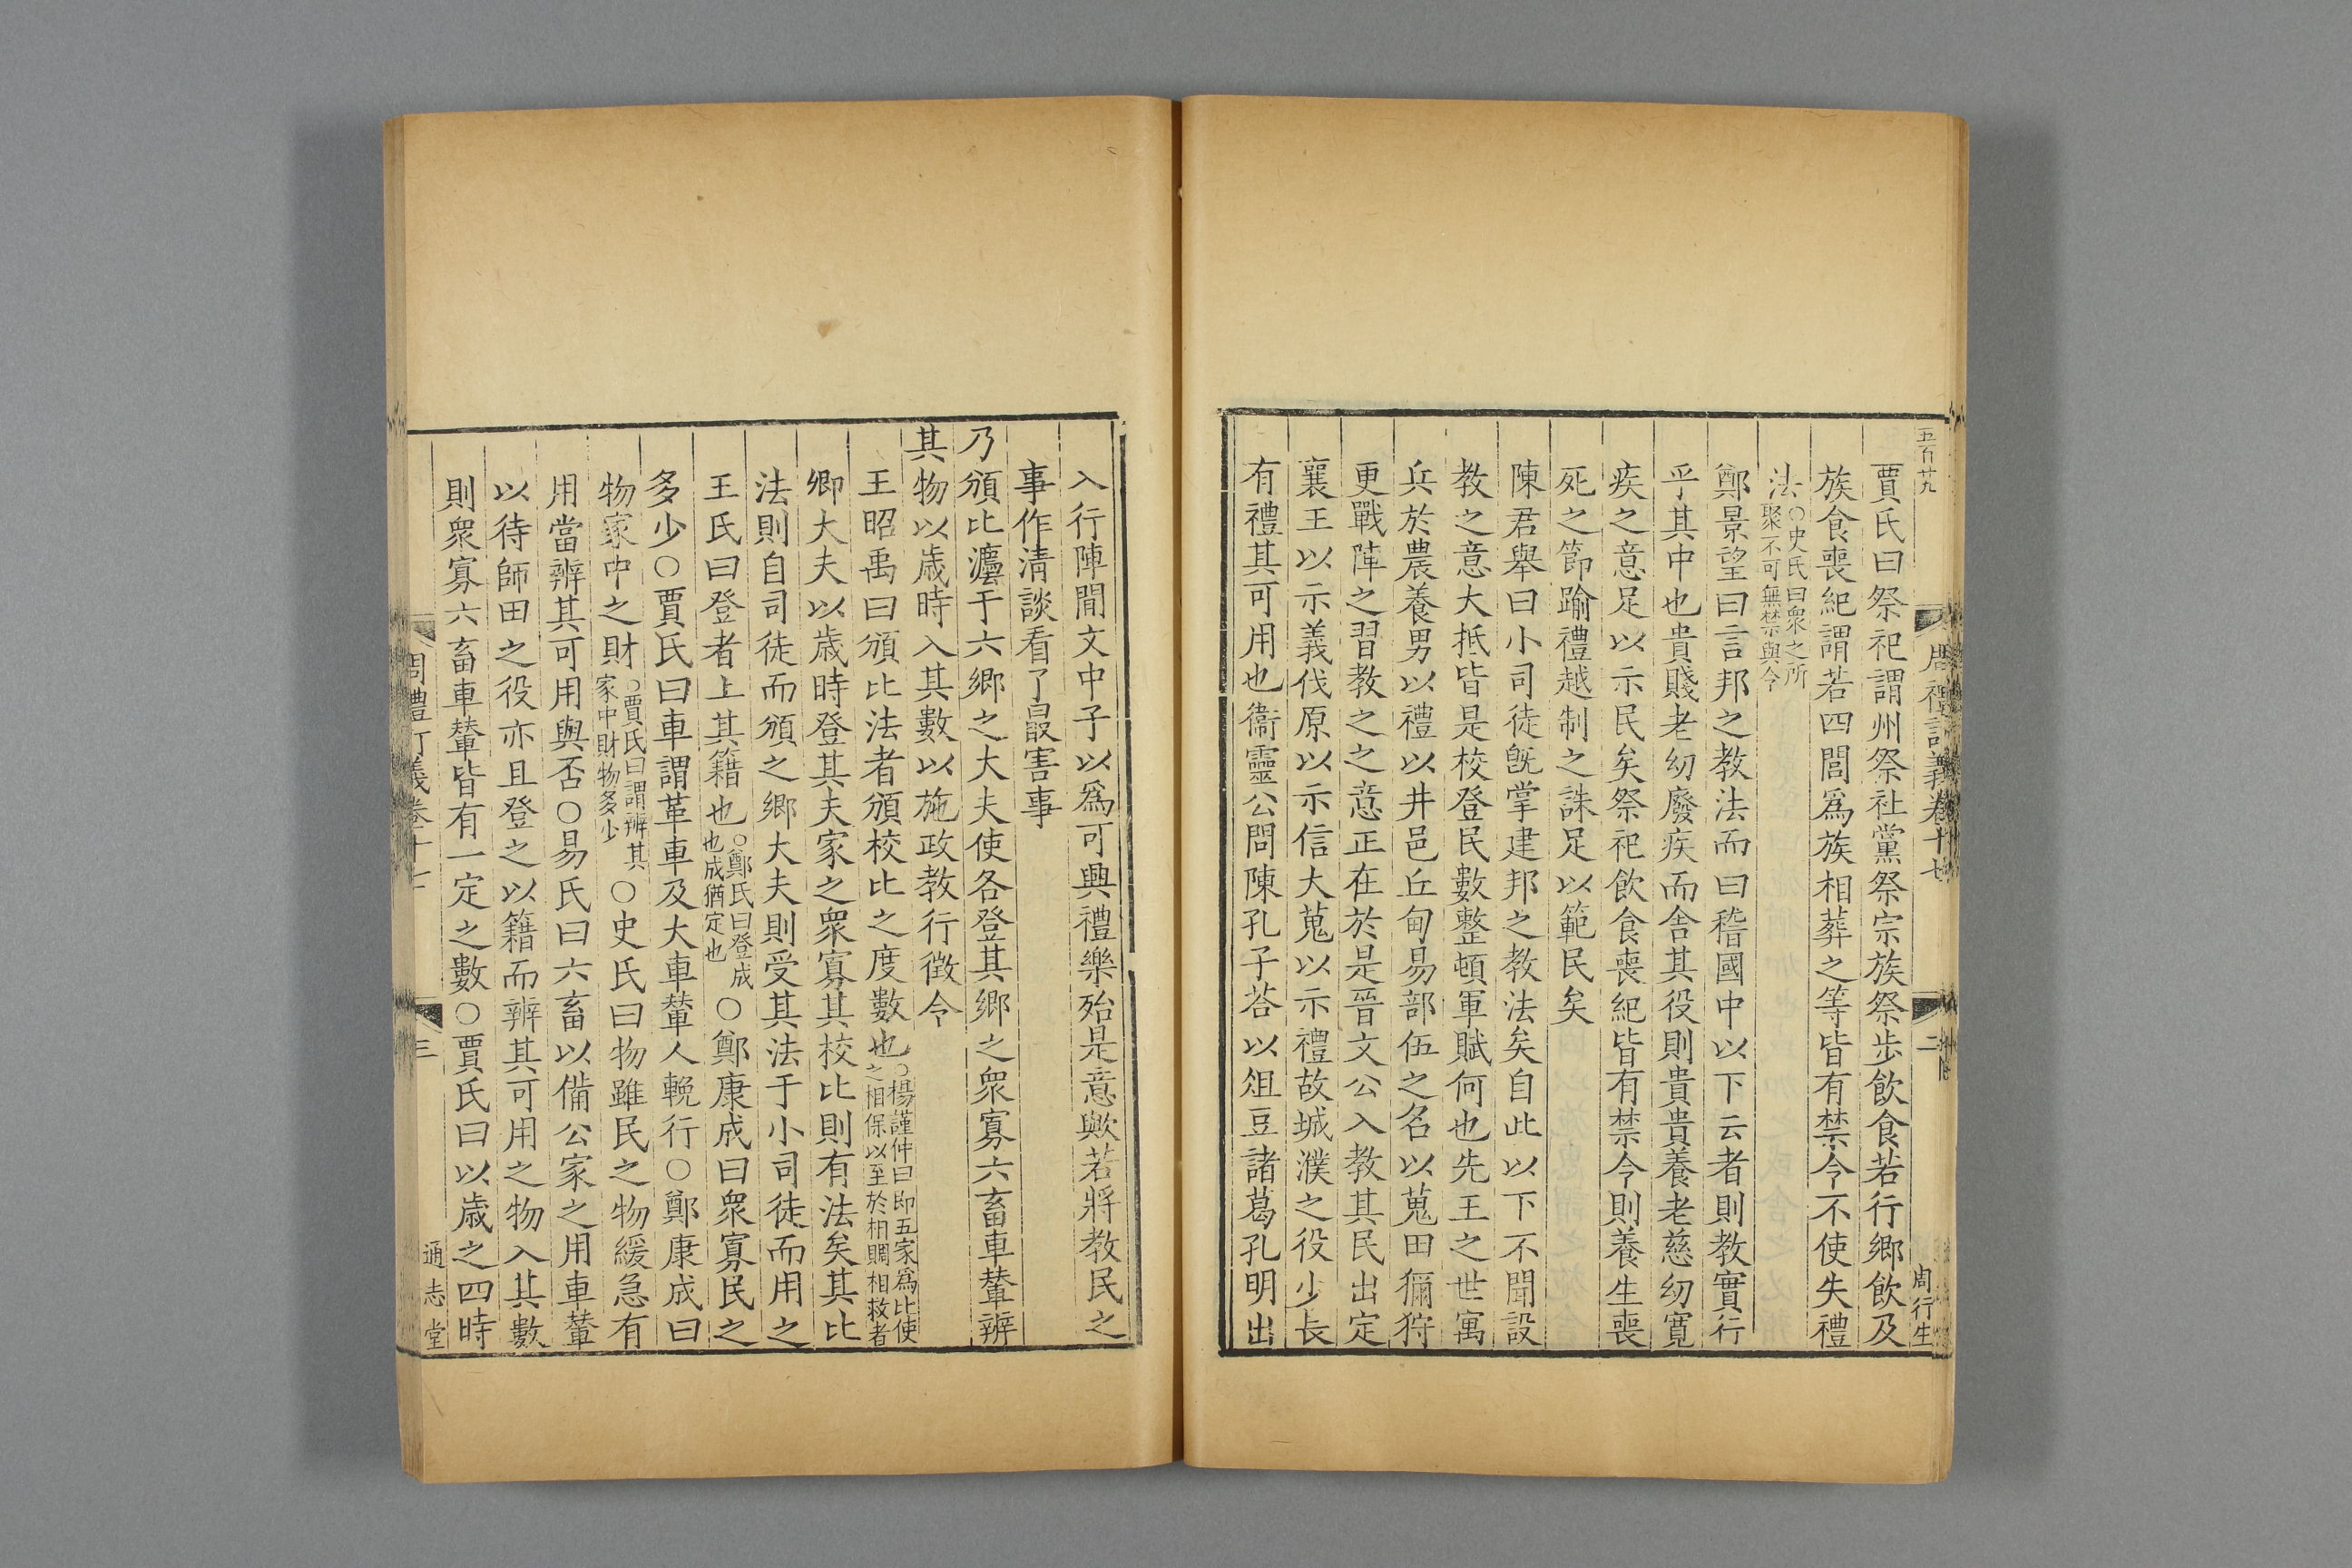 五百廿九
周禮訂義卷十七
二
周行生
賈氏曰祭祀謂州祭社黨祭宗族祭步飲食若行鄉飲及
族食喪紀謂若四閭爲族相葬之等皆有禁令不使失禮
法○史氏曰衆之所聚不可無禁與令
鄭景望曰言邦之教法而曰稽國中以下云者則教實行
乎其中也貴賤老幼廢疾而舍其役則貴貴養老慈幼寬
疾之意足以示民矣祭祀飲食喪紀皆有禁令則養生喪
死之節踰禮越制之誅足以範民矣
陳君舉曰小司徒旣掌建邦之教法矣自此以下不聞設
教之意大抵皆是校登民數整頓軍賦何也先王之世寓
兵於農養男以禮以井邑丘甸易部伍之名以蒐田獮狩
更戰陣之習教之之意正在於是晉文公入教其民出定
襄王以示義伐原以示信大蒐以示禮故城濮之役少長
有禮其可用也衞靈公問陳孔子荅以俎豆諸葛孔明出
入行陣聞文中子以爲可興禮樂殆是意歟若將教民之
事作清談看了最害事
乃頒比灋于六鄉之大夫使各登其鄉之衆寡六畜車輦辨
其物以歲時入其數以施政教行徵令
王昭禹曰頒比法者頒校比之度數也○楊謹仲曰即五家爲比使之相保以至於相賙相救者
鄉大夫以歲時登其夫家之衆寡其校比則有法矣其比
法則自司徒而頒之鄉大夫則受其法于小司徒而用之
王氏曰登者上其籍也○鄭氏曰登成也成猶定也○鄭康成曰衆寡民之
多少○賈氏曰車謂革車及大車輦人輓行○鄭康成曰
物家中之財○賈氏曰謂辨其家中財物多少○史氏曰物雖民之物緩急有
用當辨其可用與否○易氏曰六畜以備公家之用車輦
以待師田之役亦且登之以籍而辨其可用之物入其數
則衆寡六畜車輦皆有一定之數○賈氏曰以歲之四時
周禮訂義卷十七
三
通志堂